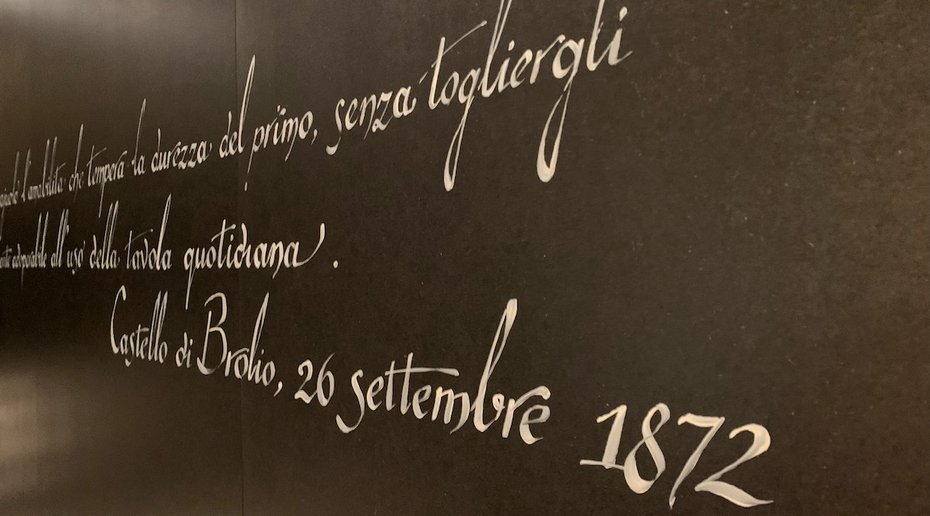 l'amabilità che tempera la durezza del primo, senza togliergli
adoperabile all'uso della tavola quotidiana.
Castello di Brolio, 26 settembre 1872